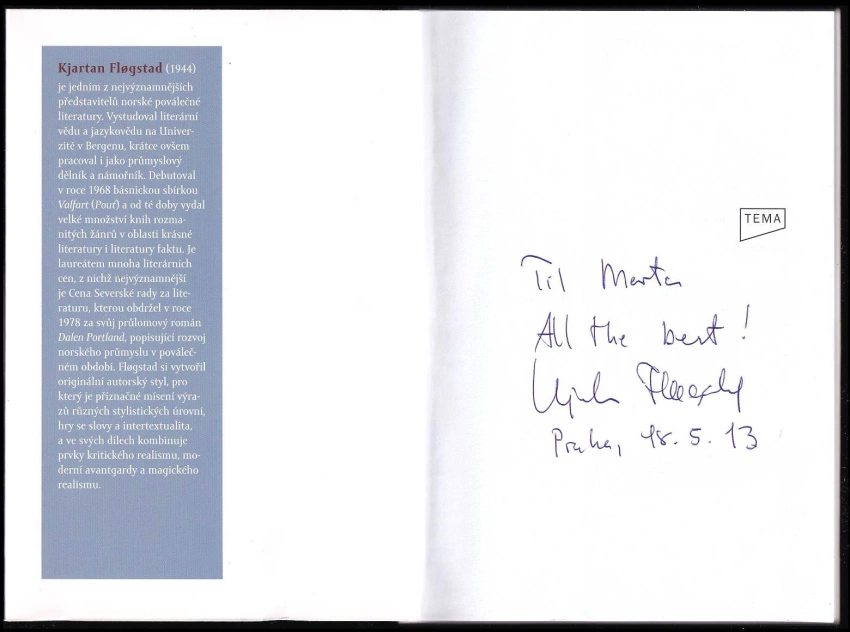 Kjartan Fløgstad (1944)
je jedním z nejvýznamnějších
představitelů norské poválečné
literatury. Vystudoval literární
vědu a jazykovědu na Univer-
zitě v Bergenu, krátce ovšem
pracoval i jako průmyslový
dělník a námořník. Debutoval
v roce 1968 básnickou sbírkou
Valfart (Pouť) a od té doby vydal
velké množství knih rozma-
nitých žánrů v oblasti krásné
literatury i literatury faktu. Je
laureátem mnoha literárních
cen, z nichž nejvýznamnější
je Cena Severské rady za lite-
raturu, kterou obdržel v roce
1978 za svůj průlomový román
Dalen Portland, popisující rozvoj
norského průmyslu v pováleč-
ném období. Fløgstad si vytvořil
originální autorský styl, pro
který je příznačné mísení výra-
zů různých stylistických úrovní,
hry se slovy a intertextualita,
a ve svých dílech kombinuje
prvky kritického realismu, mo-
derní avantgardy a magického
realismu.
TEMA
Til Marta
All the best!
Kjartan Fløgstad
Praha, 18.5.13